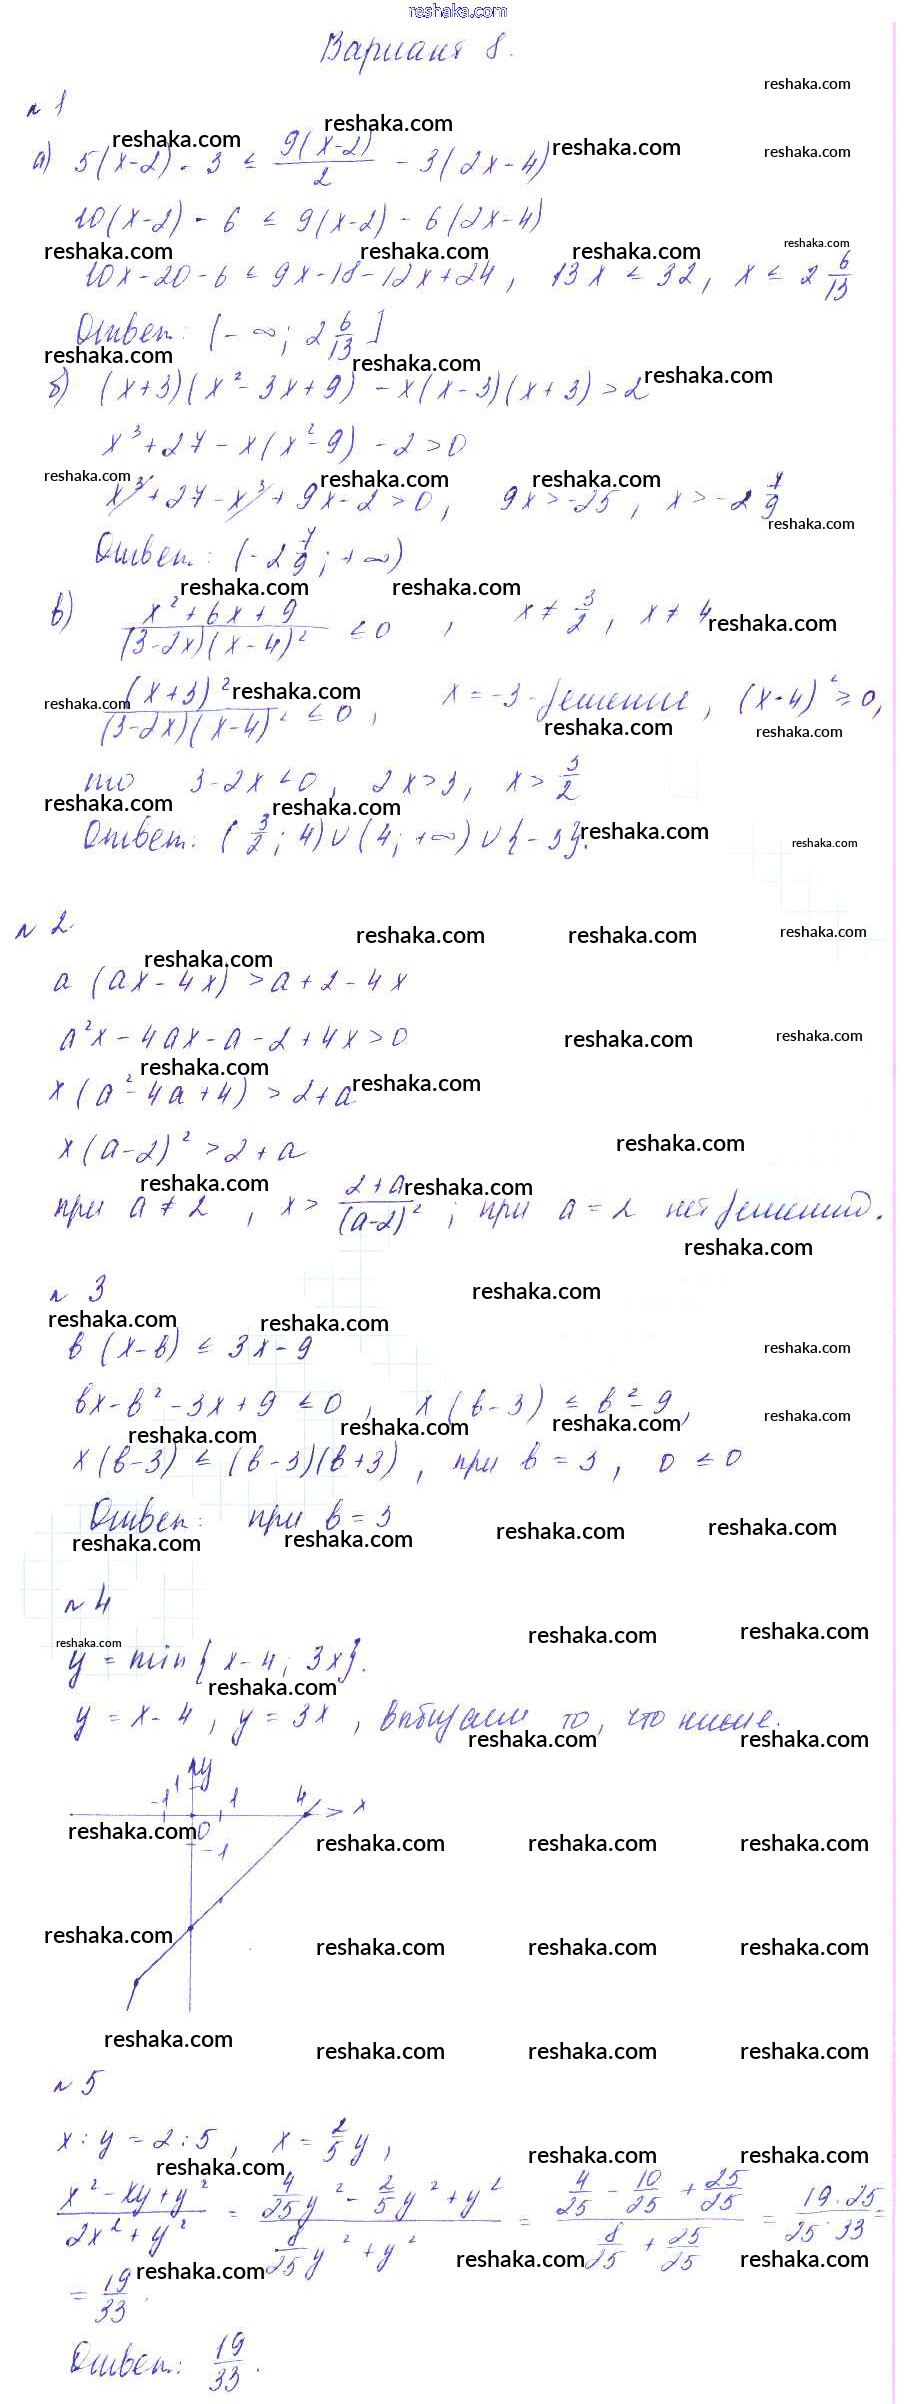 reshaka.com
Вариант 8.
n 1
а) 5(x-2) - 3 ≤ 9(x-2)/2 - 3(2x-4)
10(x-2) - 6 ≤ 9(x-2) - 6(2x-4)
10x-20-6 ≤ 9x-18-12x+24, 13x ≤ 32, x ≤ 2 6/13
Ответ: (-∞; 2 6/13]
б) (x+3)(x²-3x+9) - x(x-3)(x+3) > 2
x³+27-x(x²-9)-2>0
x³+27-x³+9x-2>0, 9x>-25, x>-2 7/9
Ответ: (-2 7/9; +∞)
в) x²+6x+9/(3-2x)(x-4)² ≤0, x≠3/2, x≠4
(x+3)²/(3-2x)(x-4)² ≤0, x=-3 - решение, (x-4)²≥0,
то 3-2x<0, 2x>3, x>3/2
Ответ: (3/2; 4)∪(4; +∞)∪{-3}.
n 2
a(ax-4x)>a+2-4x
a²x-4ax-a-2+4x>0
x(a²-4a+4)>2+a
x(a-2)²>2+a
при a≠2, x>2+a/(a-2)²; при a=2 нет решений.
n 3
в(x-в) ≤ 3x-9
вx-в²-3x+9≤0, x(в-3) ≤ в²-9,
x(в-3) ≤ (в-3)(в+3), при в=3, 0≤0
Ответ: при в=3
n 4
y = min{x-4; 3x}.
y = x-4, y = 3x, выбираем то, что ниже.
y
1
-1 0 1 4 x
-1
n 5
x:y=2:5, x=2/5 y,
x²-xy+y²/2x²+y² = 4/25 y² - 2/5 y² + y² / 8/25 y² + y² = 4/25 - 10/25 + 25/25 / 8/25 + 25/25 = 19·25/25·33 =
= 19/33.
Ответ: 19/33.